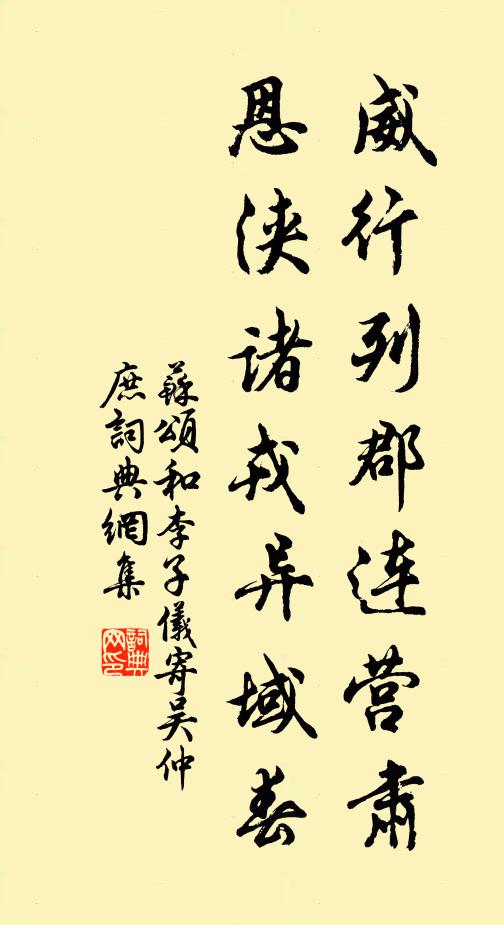 威行列郡连营肃
恩浃诸戎异域春
蘇頌和李子儀寄吴仲
庶詞典網集
詞典
网印